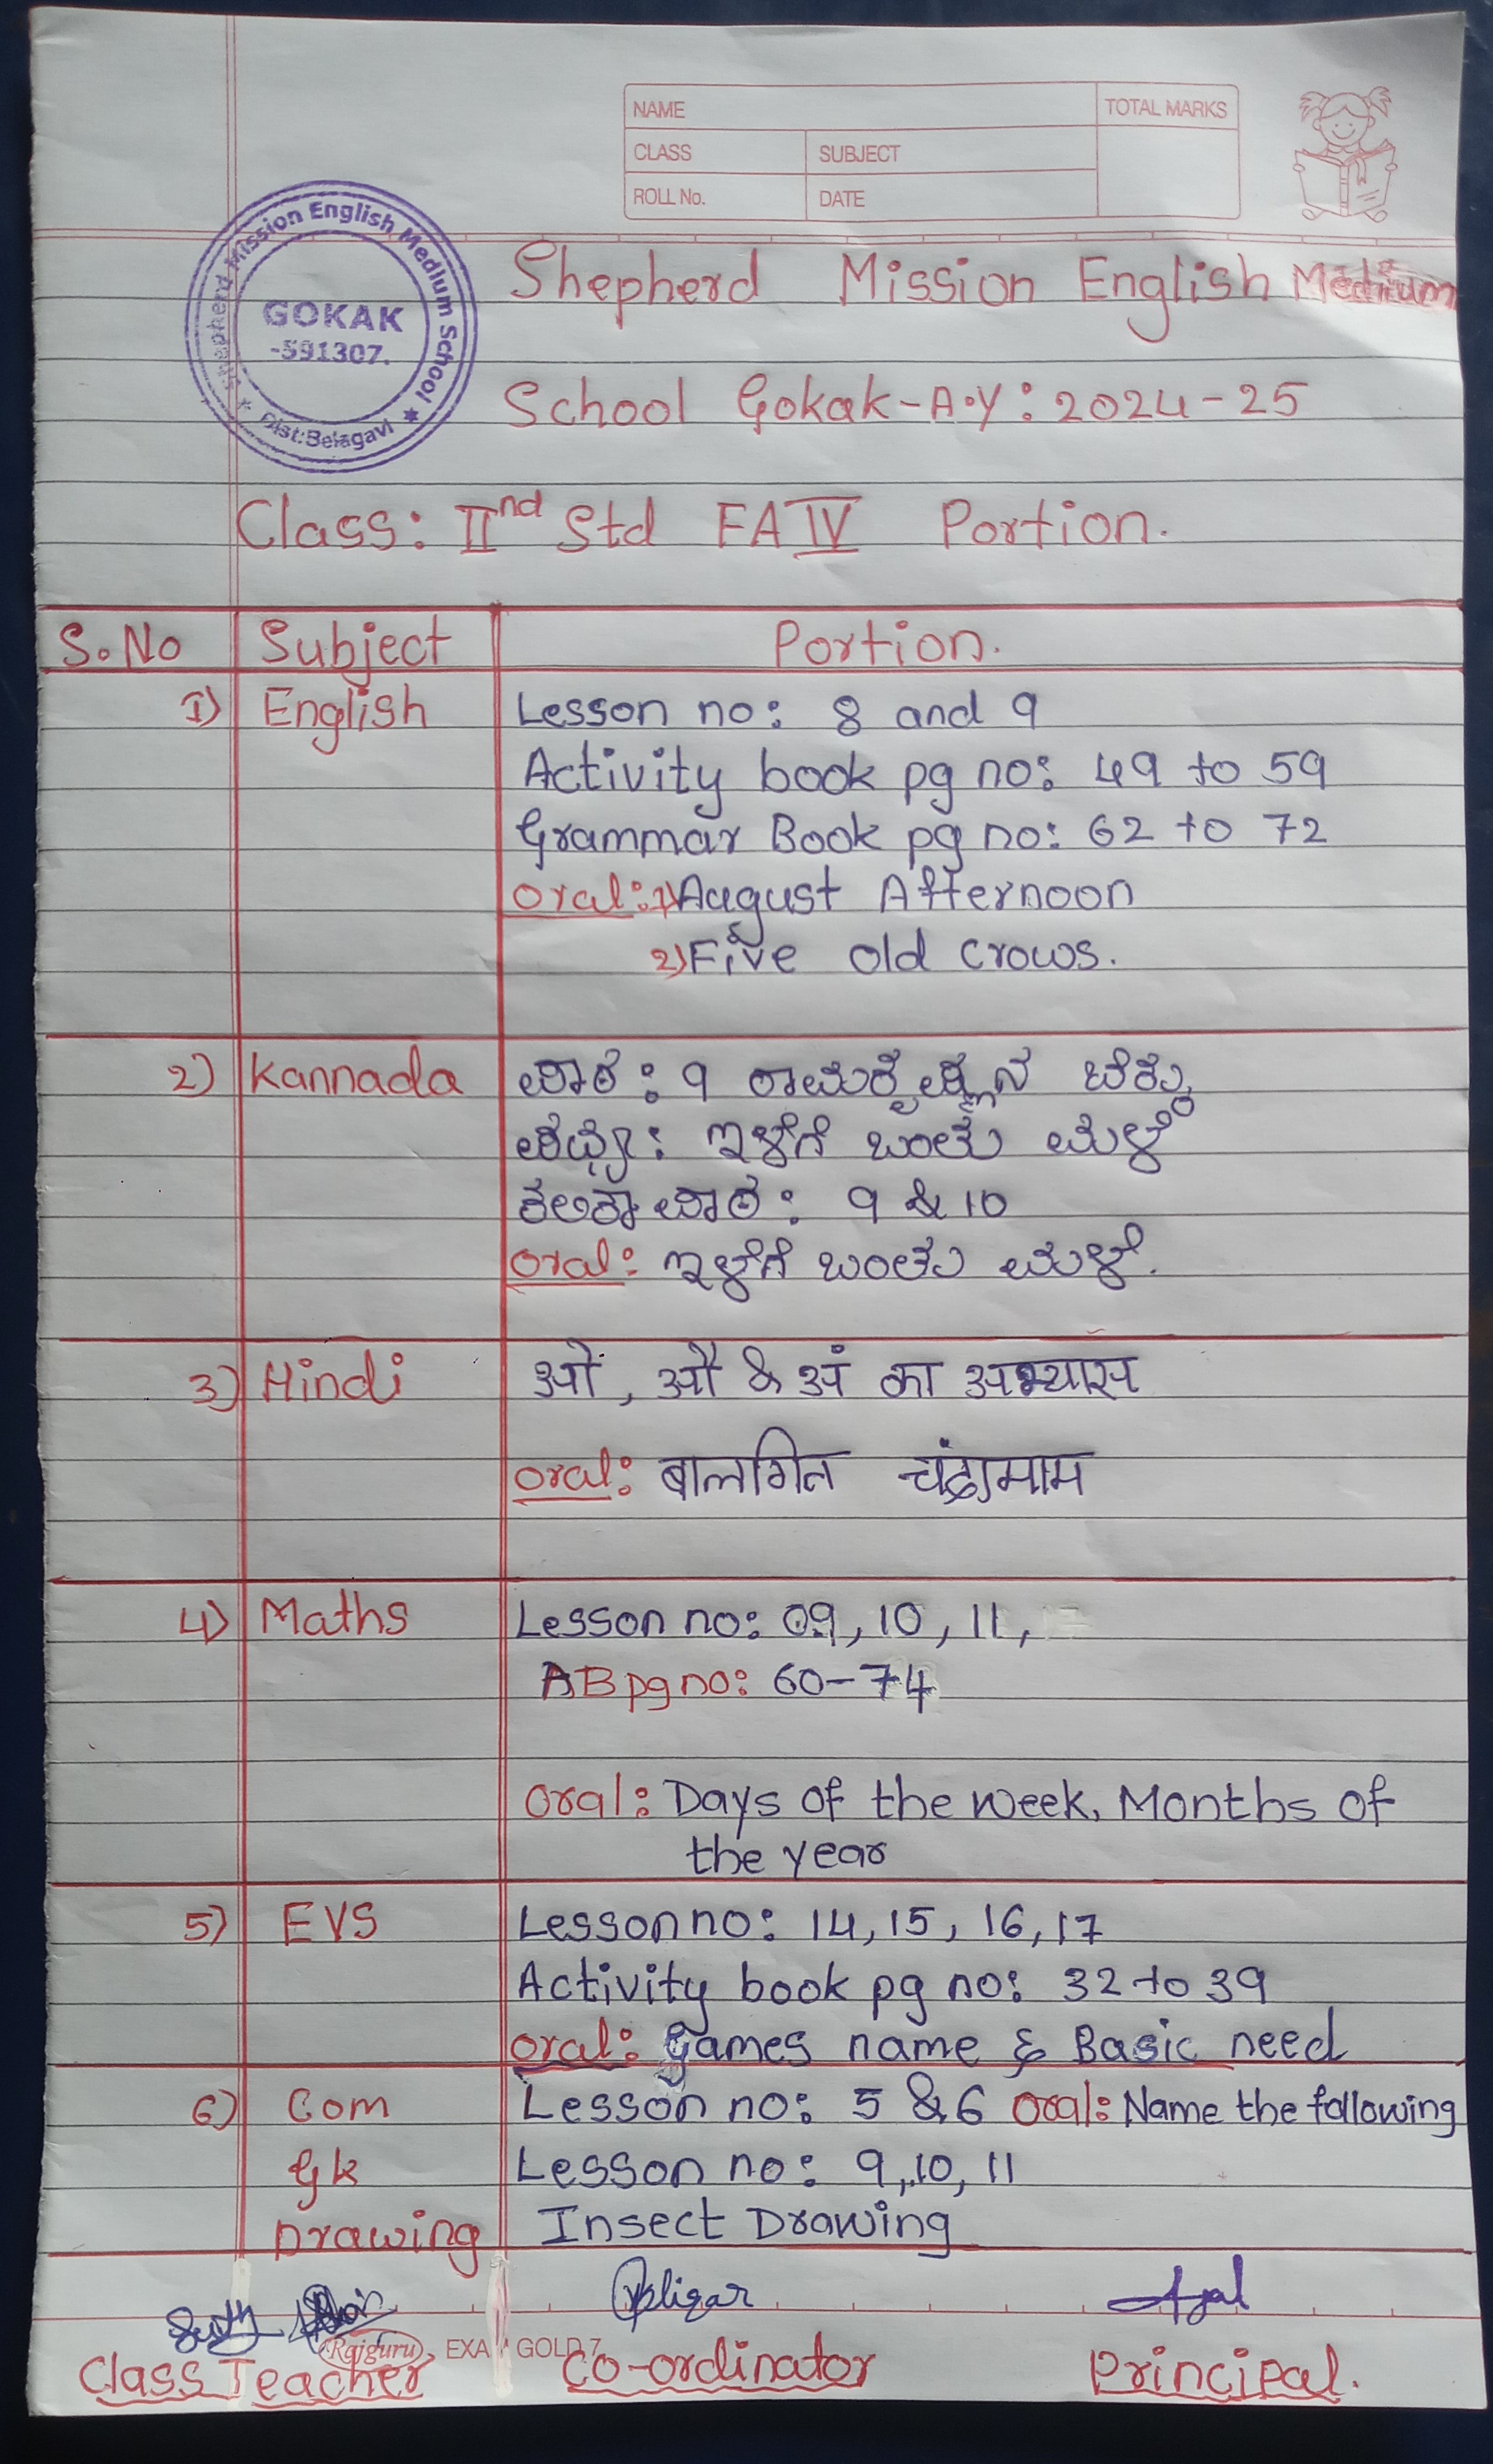 NAME
TOTAL MARKS
CLASS
SUBJECT
ROLL No.
DATE
Shepherd Mission English Medium School
GOKAK
-591307.
Dist:Belagavi
Shepherd Mission English Medium
School Gokak-A.Y: 2024-25
Class: IInd Std FA IV Portion.
S.No Subject Portion.
1) English Lesson no: 8 and 9
Activity book pg no: 49 to 59
Grammar Book pg no: 62 to 72
Oral: 1) August Afternoon
2) Five old crows.
2) Kannada ಪಾಠ: 9 ರಾಮಕೃಷ್ಣನ ಬೆಕ್ಕು
ಪದ್ಯ: ಇಳೆಗೆ ಬಂತು ಮಳೆ
ಕಲಿಕಾ ಪಾಠ: 9 & 10
Oral: ಇಳೆಗೆ ಬಂತು ಮಳೆ.
3) Hindi ओ, औ & अं का अभ्यास
Oral: बालगित चंद्रामाम
4) Maths Lesson no: 09, 10, 11,
AB pg no: 60-74
Oral: Days of the week, Months of
the year
5) EVS Lesson no: 14, 15, 16, 17
Activity book pg no: 32 to 39
Oral: Games name & Basic need
6) Com Lesson no: 5 & 6 Oral: Name the following
Gk Lesson no: 9, 10, 11
Drawing Insect Drawing
Rajguru EXA GOLD 7
Class Teacher Co-ordinator Principal.